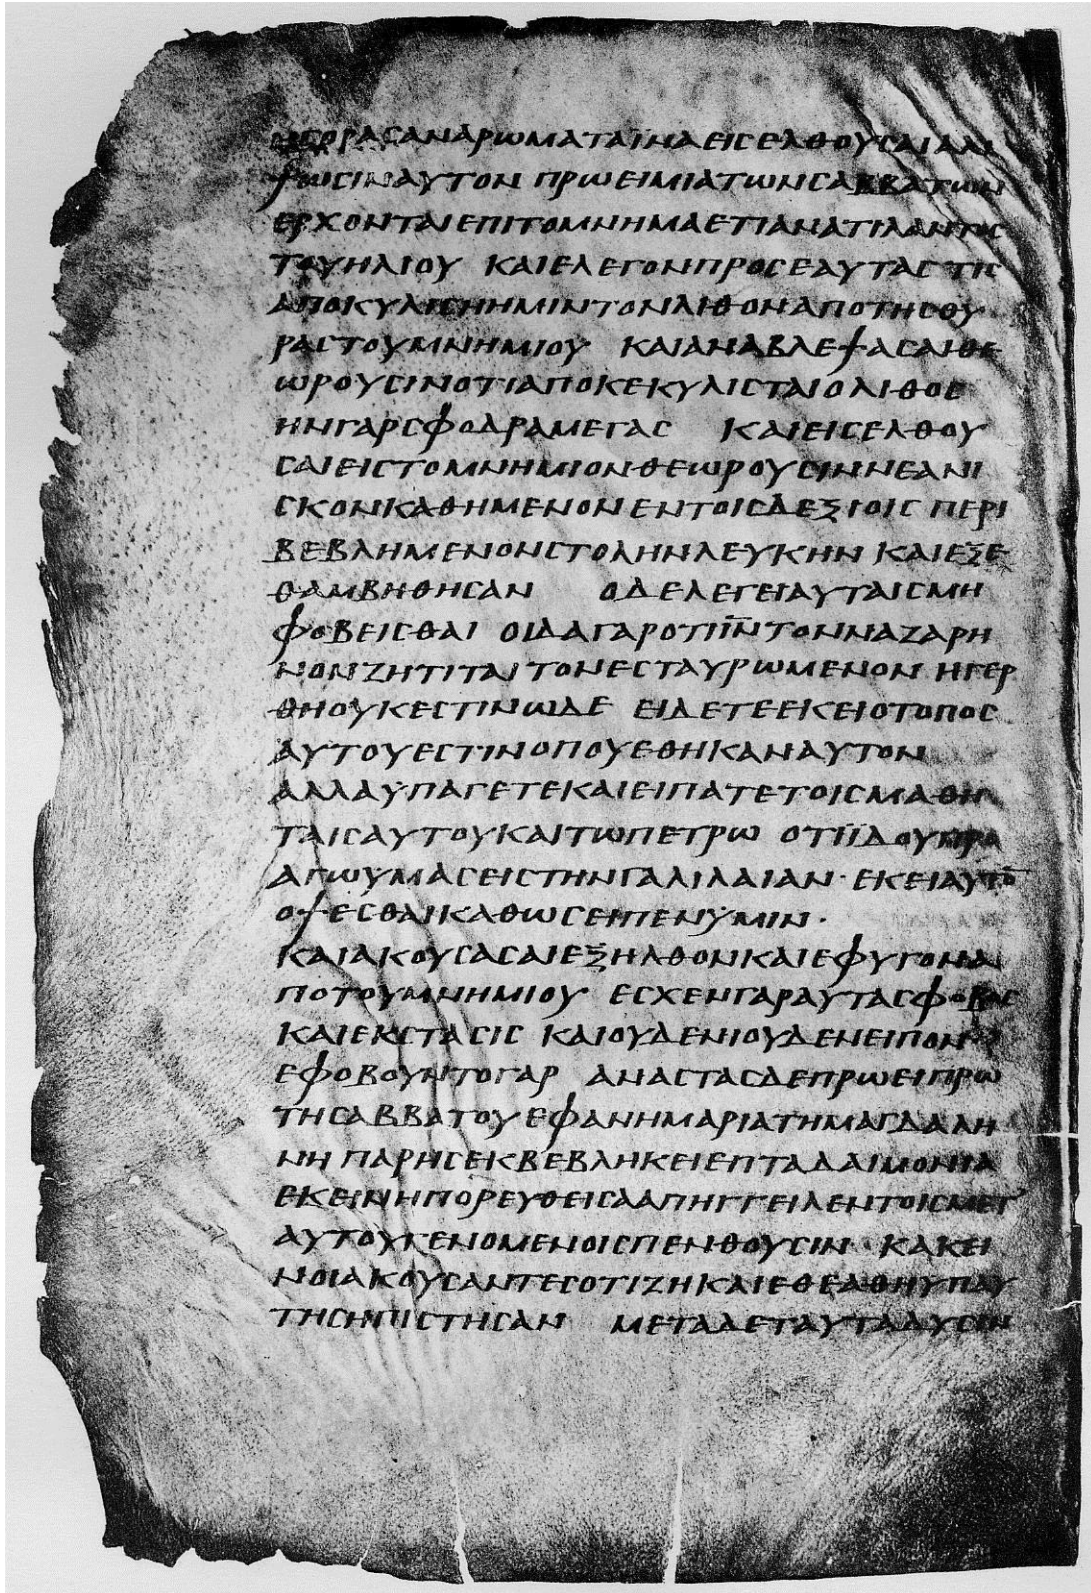 ΗΓΟΡΑCΑΝΑΡΩΜΑΤΑΪΝΑΕΙCΕΛΘΟΥCΑΙΑΛΙ
ΨΩCΙΝΑΥΤΟΝ ΠΡΩΕΙΜΙΑΤΩΝCΑΒΒΑΤΩΝ
ΕΡΧΟΝΤΑΙΕΠΙΤΟΜΝΗΜΑΕΤΙΑΝΑΤΙΛΑΝΤΟC
ΤΟΥΗΛΙΟΥ ΚΑΙΕΛΕΓΟΝΠΡΟCΕΑΥΤΑCΤΙC
ΑΠΟΚΥΛΙCΗΗΜΙΝΤΟΝΛΙΘΟΝΑΠΟΤΗCΘΥ
ΡΑCΤΟΥΜΝΗΜΙΟΥ ΚΑΙΑΝΑΒΛΕΨΑCΑΙΘΕ
ΩΡΟΥCΙΝΟΤΙΑΠΟΚΕΚΥΛΙCΤΑΙΟΛΙΘΟC
ΗΝΓΑΡCΦΟΔΡΑΜΕΓΑC ΚΑΙΕΙCΕΛΘΟΥ
CΑΙΕΙCΤΟΜΝΗΜΙΟΝΘΕΩΡΟΥCΙΝΝΕΑΝΙ
CΚΟΝΚΑΘΗΜΕΝΟΝΕΝΤΟΙCΔΕΞΙΟΙC ΠΕΡΙ
ΒΕΒΛΗΜΕΝΟΝCΤΟΛΗΝΛΕΥΚΗΝ ΚΑΙΕΞΕ
ΘΑΜΒΗΘΗCΑΝ ΟΔΕΛΕΓΕΙΑΥΤΑΙCΜΗ
ΦΟΒΕΙCΘΑΙ ΟΙΔΑΓΑΡΟΤΙΙ̅Ν̅ΤΟΝΝΑΖΑΡΗ
ΝΟΝΖΗΤΙΤΑΙΤΟΝΕCΤΑΥΡΩΜΕΝΟΝ ΗΓΕΡ
ΘΗΟΥΚΕCΤΙΝΩΔΕ ΕΙΔΕΤΕΕΚΕΙΟΤΟΠΟC
ΑΥΤΟΥΕCΤΙΝΟΠΟΥΕΘΗΚΑΝΑΥΤΟΝ
ΑΛΛΑΫΠΑΓΕΤΕΚΑΙΕΙΠΑΤΕΤΟΙCΜΑΘΗ
ΤΑΙCΑΥΤΟΥΚΑΙΤΩΠΕΤΡΩ ΟΤΙΪΔΟΥΠΡΟ
ΑΓΩΥΜΑCΕΙCΤΗΝΓΑΛΙΛΑΙΑΝ · ΕΚΕΙΑΥΤΟ̅
ΟΨΕCΘΑΙΚΑΘΩCΕΙΠΕΝΫΜΙΝ ·
ΚΑΙΑΚΟΥCΑCΑΙΕΞΗΛΘΟΝΚΑΙΕΦΥΓΟΝΑ
ΠΟΤΟΥΜΝΗΜΙΟΥ ΕCΧΕΝΓΑΡΑΥΤΑCΦΟΒΟC
ΚΑΙΕΚCΤΑCΙC ΚΑΙΟΥΔΕΝΙΟΥΔΕΝΕΙΠΟΝ
ΕΦΟΒΟΥΝΤΟΓΑΡ ΑΝΑCΤΑCΔΕΠΡΩΕΙΠΡΩ
ΤΗCΑΒΒΑΤΟΥΕΦΑΝΗΜΑΡΙΑΤΗΜΑΓΔΑΛΗ
ΝΗ ΠΑΡΗCΕΚΒΕΒΛΗΚΕΙΕΠΤΑΔΑΙΜΟΝΙΑ
ΕΚΕΙΝΗΠΟΡΕΥΘΕΙCΑΑΠΗΓΓΕΙΛΕΝΤΟΙCΜΕΤ
ΑΥΤΟΥΓΕΝΟΜΕΝΟΙCΠΕΝΘΟΥCΙΝ · ΚΑΚΕΙ
ΝΟΙΑΚΟΥCΑΝΤΕCΟΤΙΖΗΚΑΙΕΘΕΑΘΗΥΠΑΥ
ΤΗCΗΠΙCΤΗCΑΝ ΜΕΤΑΔΕΤΑΥΤΑΔΥCΙΝ